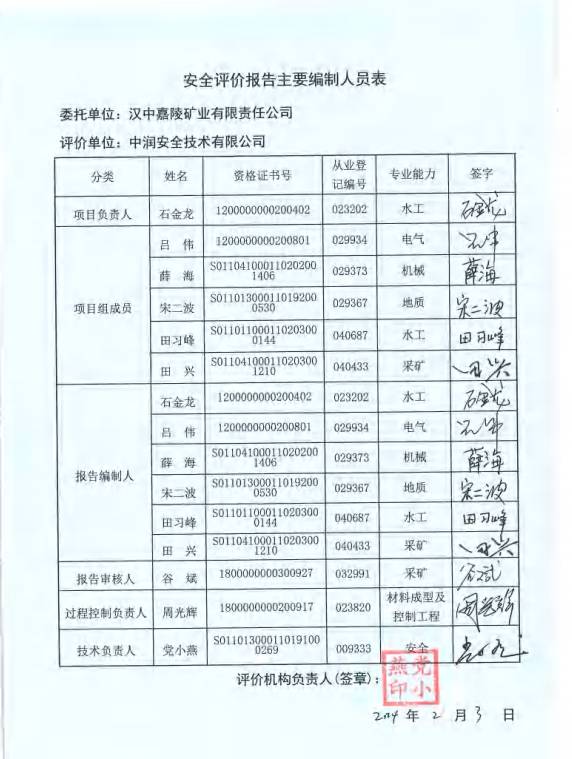 安全评价报告主要编制人员表
委托单位：汉中嘉陵矿业有限责任公司
评价单位：中润安全技术有限公司
分类 姓名 资格证书号 从业登记编号 专业能力 签字
项目负责人 石金龙 1200000000200402 023202 水工 石金龙
项目组成员 吕 伟 1200000000200801 029934 电气 吕伟
薛 海 S011041000110202001406 029373 机械 薛海
宋二波 S011013000110192000530 029367 地质 宋二波
田习峰 S011011000110203000144 040687 水工 田习峰
田 兴 S011041000110203001210 040433 采矿 田兴
报告编制人 石金龙 1200000000200402 023202 水工 石金龙
吕 伟 1200000000200801 029934 电气 吕伟
薛 海 S011041000110202001406 029373 机械 薛海
宋二波 S011013000110192000530 029367 地质 宋二波
田习峰 S011011000110203000144 040687 水工 田习峰
田 兴 S011041000110203001210 040433 采矿 田兴
报告审核人 谷 斌 1800000000300927 032991 采矿 谷斌
过程控制负责人 周光辉 1800000000200917 023820 材料成型及控制工程
技术负责人 党小燕 S011013000110191000269 009333 安全
评价机构负责人(签章)：
党小燕印
2024 年 2 月 3 日